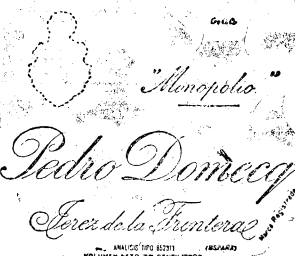 "Monopolio."
Pedro Domecq
Jerez de la Frontera
Marca Registrada
ANALISIS TIPO 652311 (ESPAÑA)